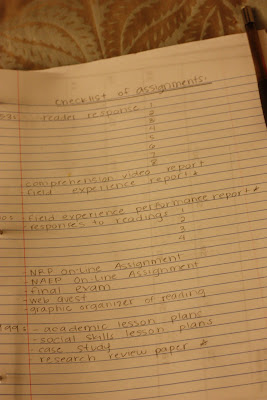 checklist of assignments:
- reader response 1
2
3
4
5
6
7
8
- comprehension video report
- field experience report *
- field experience performance report *
- responses to readings 1
2
3
4
- NRP On-Line Assignment
- NAEP On-Line Assignment
- final exam
- web quest
- graphic organizer of reading
- academic lesson plans
- social skills lesson plans
- case study
research review paper *